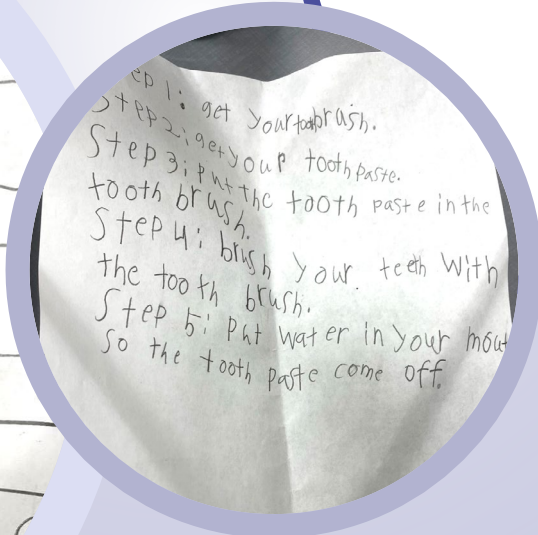 ep 1: get your toothbrush.
Step 2: get your tooth paste.
Step 3: put the tooth paste in the
tooth brush.
Step 4: brush your teeth with
the tooth brush.
Step 5: put water in your mout
so the tooth paste come off.